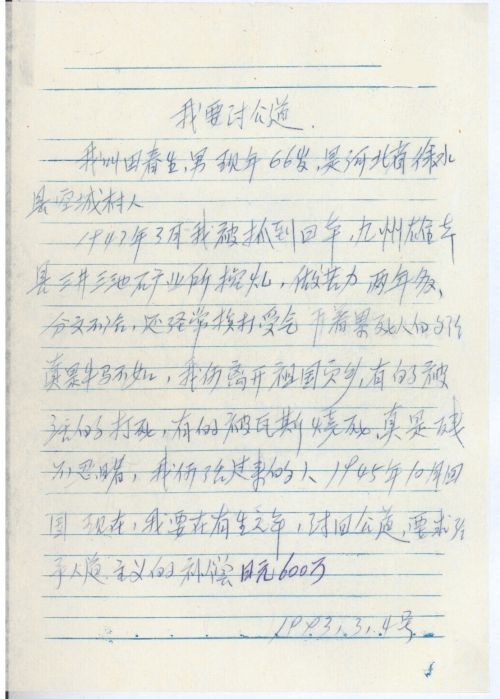 我要讨公道.
我叫田春生,男现年66岁,是河北省徐水
县 城村人
1942年3月我被抓到日本,九州雄本
县三井三池矿业所挖煤,做苦力两年多、
分文不给,还经常挨打受气 干着累死人的活
真累牛马不如,我们离开祖国家乡,有的被
活的打死,有的被瓦斯烧死,真是残
不忍睹,我们活过来的人、1945年10月回
国 现在,我要在有生之年,讨回公道,要求给
予人道主义的补偿日元600万
1993.3.4号